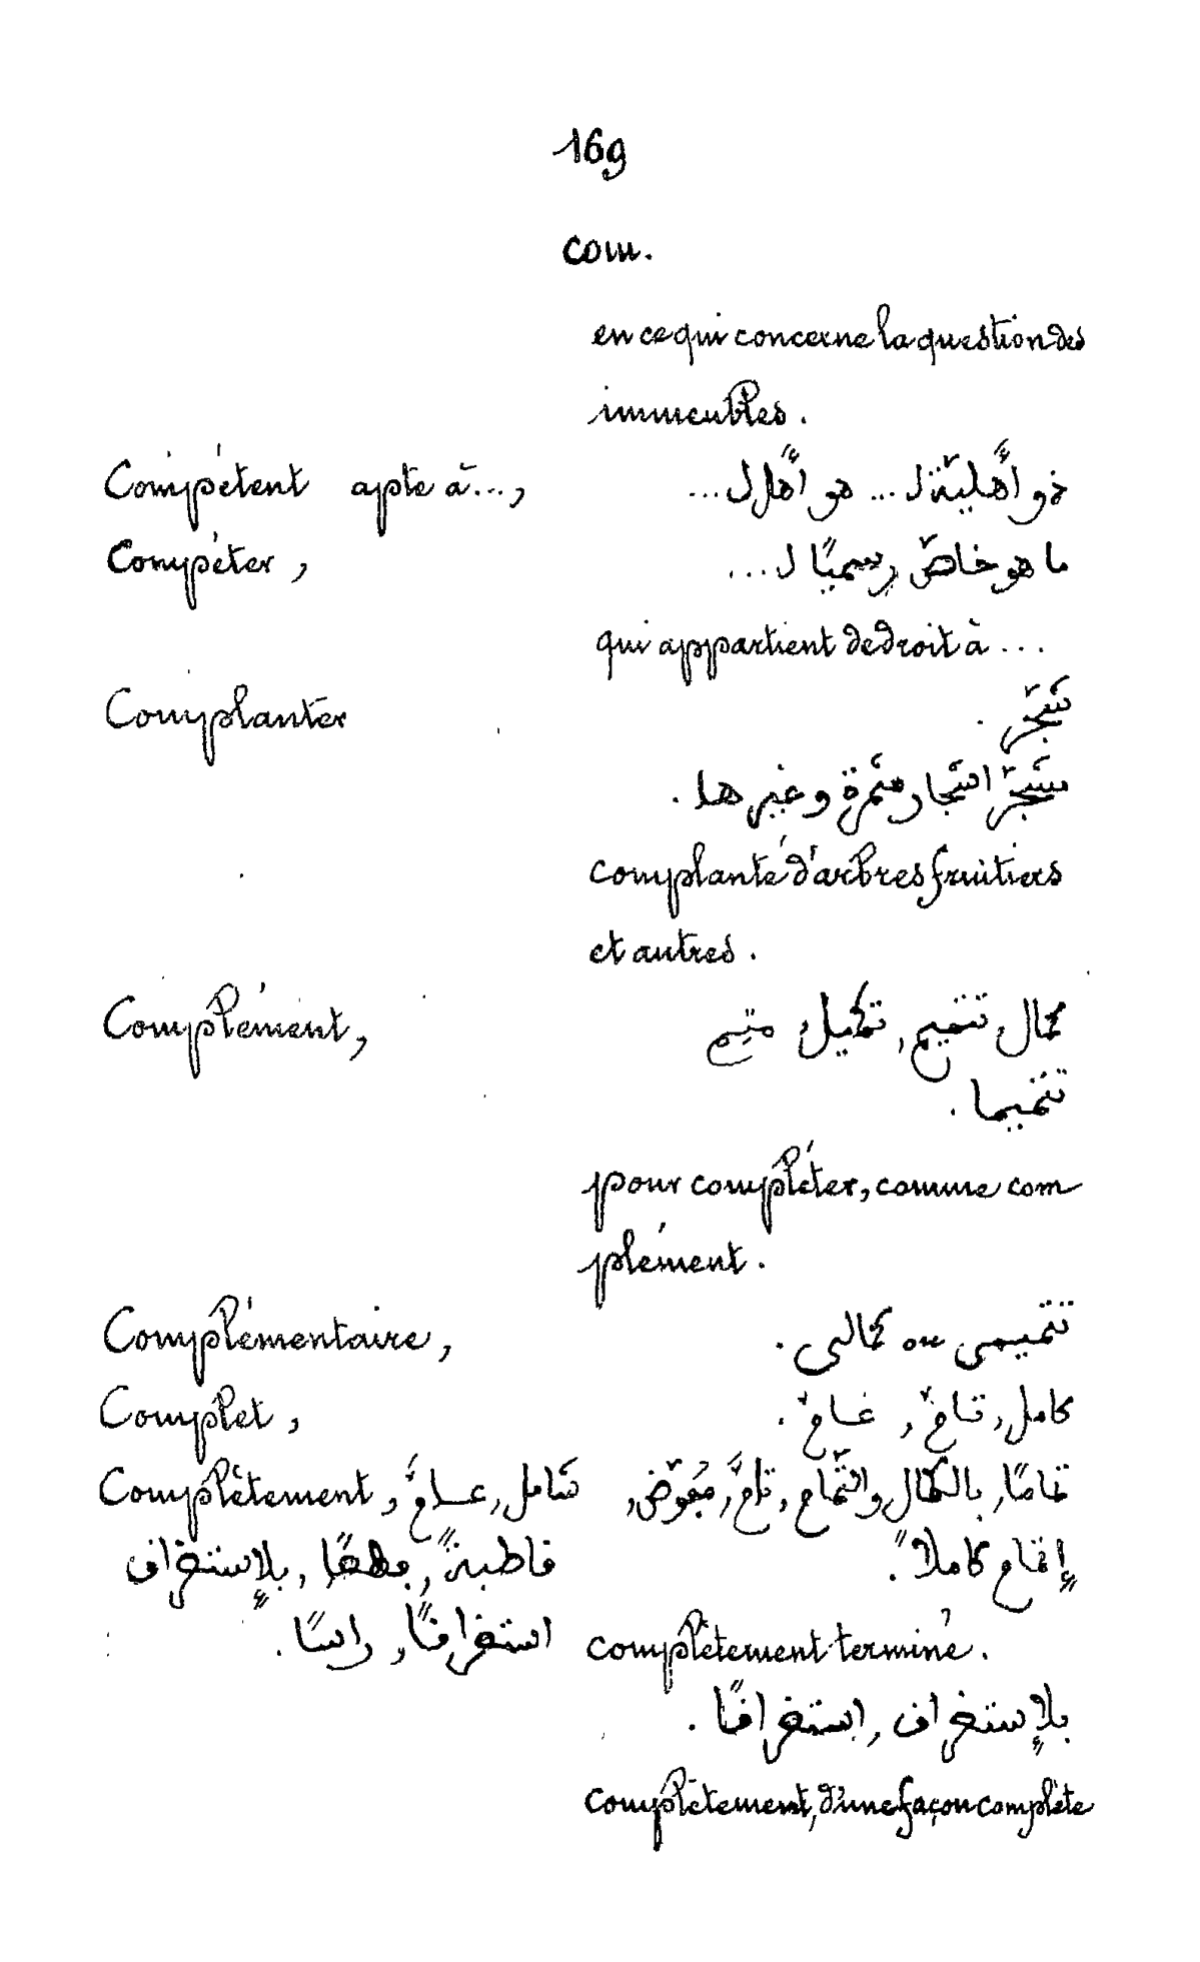 169
com.
en ce qui concerne la question des
immeubles.
Compétent apte à..., ذو أهليّة ل... هو أهل ل...
Compéter, ما هو خاصّ رسميًا ل...
qui appartient de droit à ...
Complanter شَجّر.
مشجّر اشجار مثمرة وغيرها.
complanté d'arbres fruitiers
et autres.
Complément, كمال, تتميم, تكميل, متمم
تتميما.
pour compléter, comme com
plément.
Complémentaire, تتميمى ou كمالى.
Complet, كامل, تامّ, عامّ.
Complètement, شامل, عامّ, تمامًا, بالكمال والتمام, تامّ, مُفوّض,
قاطبةً, بالإستغراق إتمام كاملاً.
استغراقًا, راسًا. complètement terminé.
بالإستغراق, استغراقًا.
complètement, d'une façon complète